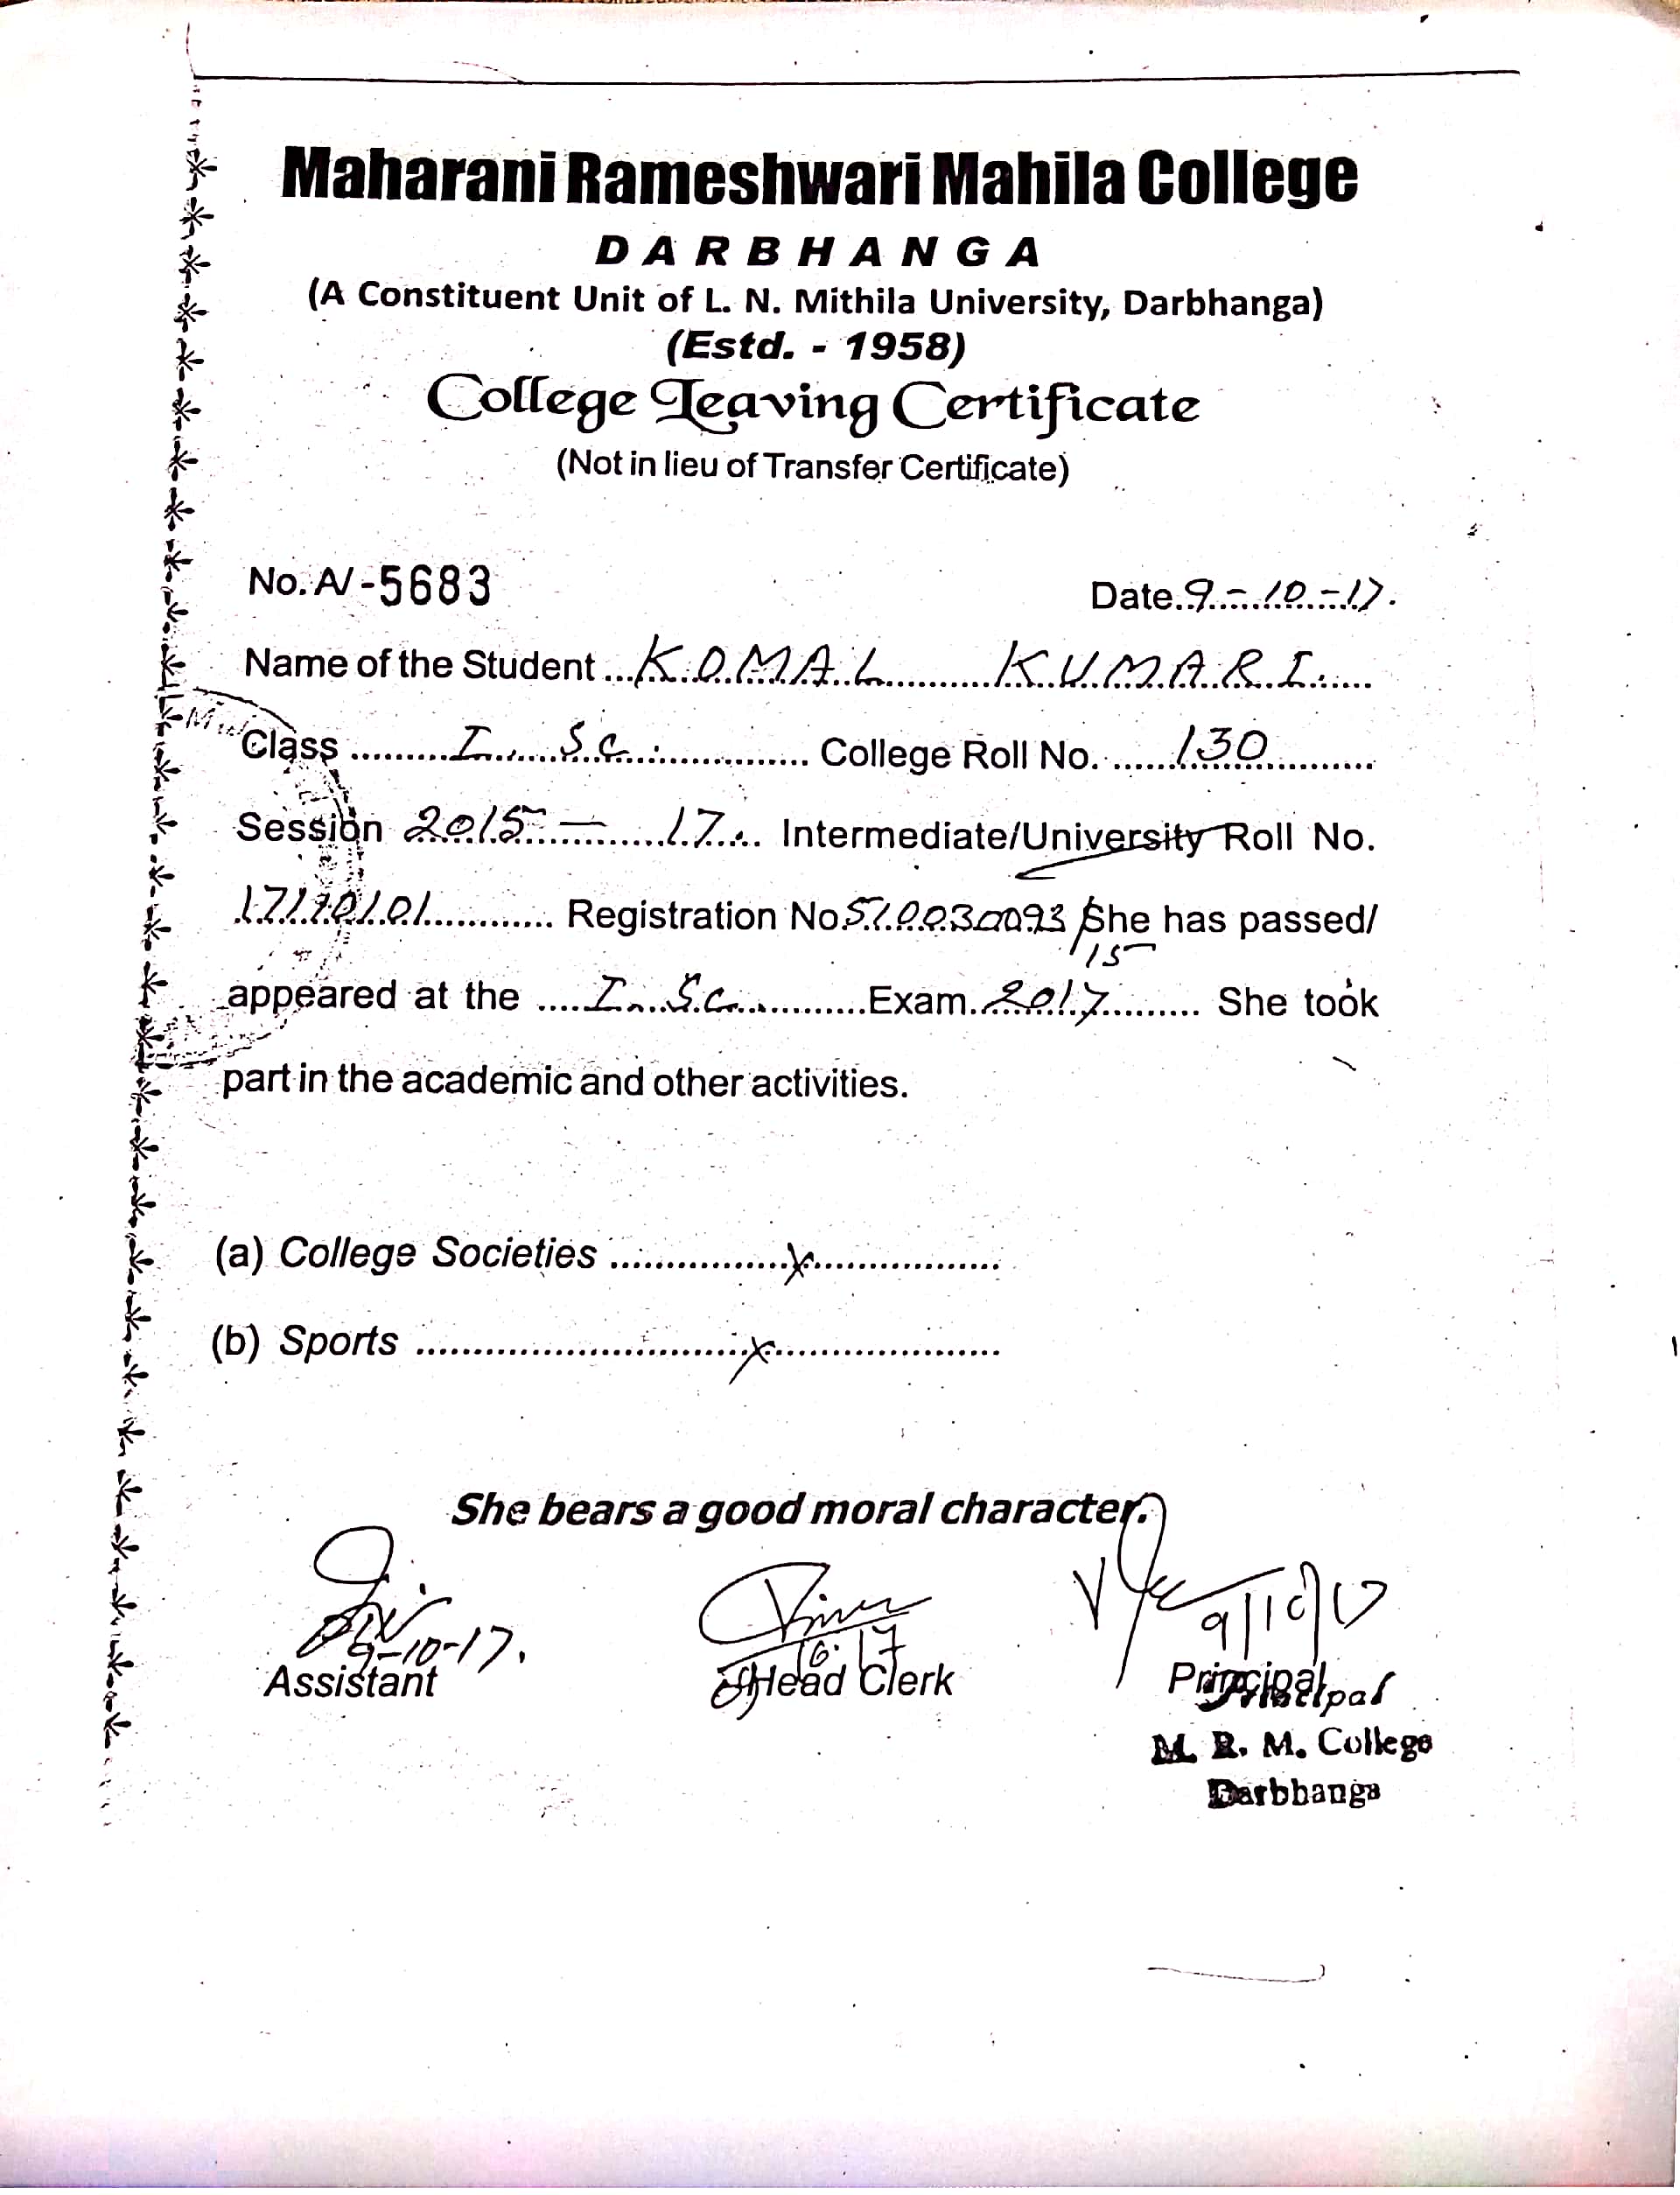 Maharani Rameshwari Mahila College
DARBHANGA
(A Constituent Unit of L. N. Mithila University, Darbhanga)
(Estd. - 1958)
College Leaving Certificate
(Not in lieu of Transfer Certificate)
No. A/-5683 Date. 9-10-17.
Name of the Student ... KOMAL KUMARI
Class ... I. Sc. ... College Roll No. ... 130
Session 2015-17. Intermediate/University Roll No.
Registration No 5710030093/15 She has passed/
appeared at the ... I. Sc. ... Exam. 2017 ... She took
part in the academic and other activities.
(a) College Societies ... x ...
(b) Sports ... x ...
She bears a good moral character.
9-10-17. 9/10/17
Assistant Head Clerk Principal
Principal
M. R. M. College
Darbhanga